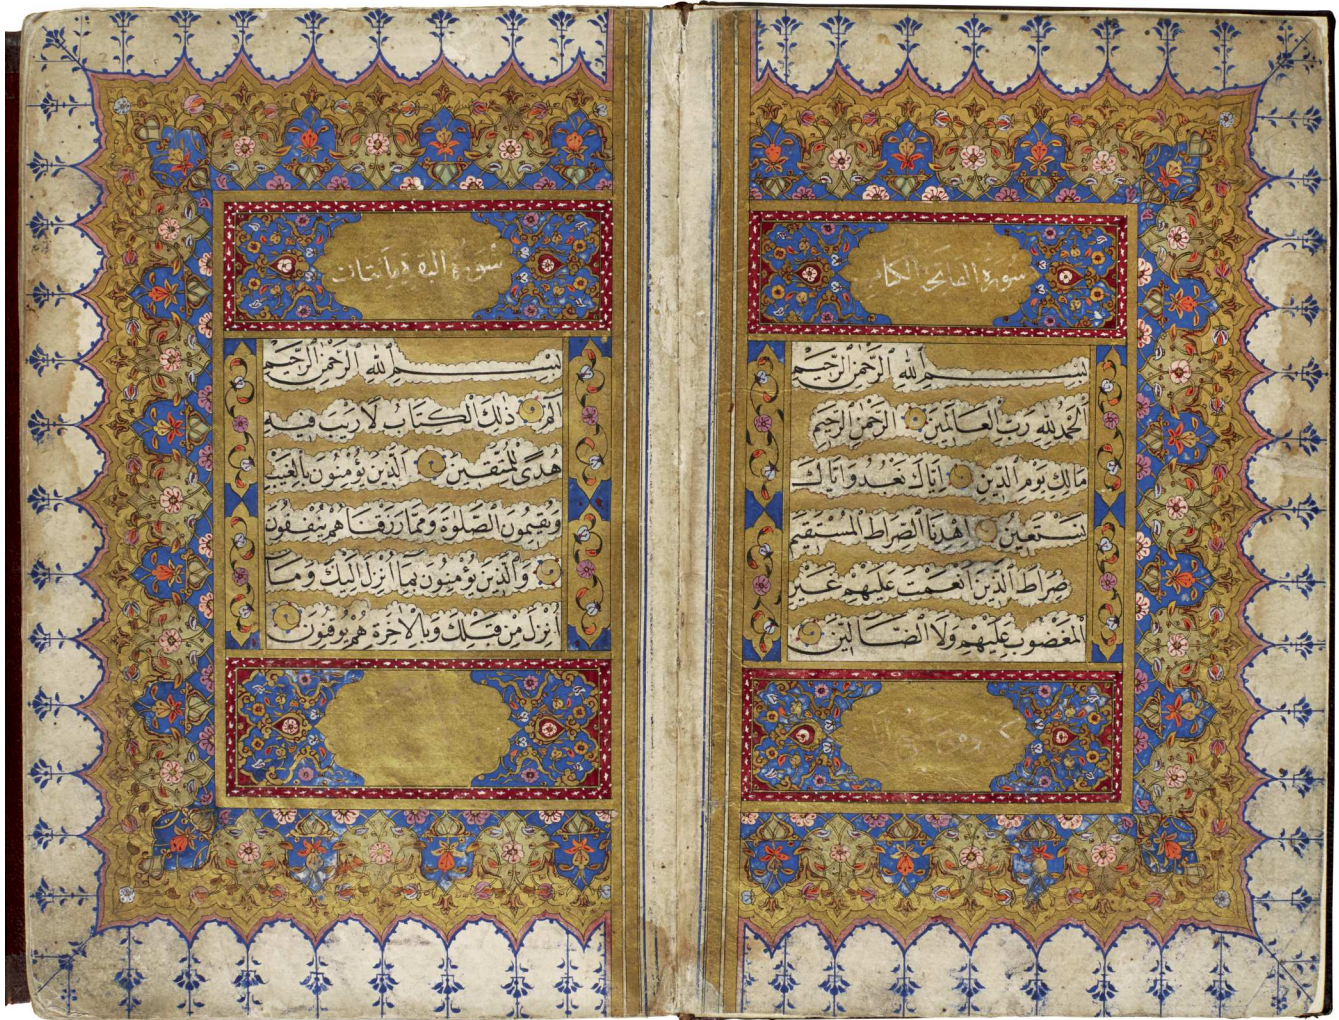 سورة الفاتحة الكتاب
بسم الله الرحمن الرحيم
الحمد لله رب العالمين الرحمن الرحيم
مالك يوم الدين اياك نعبد واياك
نستعين اهدنا الصراط المستقيم
صراط الذين انعمت عليهم غير
المغضوب عليهم ولا الضالين
سورة البقرة مأيتان
بسم الله الرحمن الرحيم
الم ذلك الكتاب لا ريب فيه
هدى للمتقين الذين يؤمنون بالغيب
ويقيمون الصلوة ومما رزقناهم ينفقون
والذين يؤمنون بما أنزل اليك وما
أنزل من قبلك وبالآخرة هم يوقنون